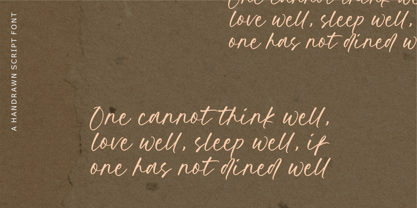 A HANDRAWN SCRIPT FONT
One cannot think w
love well, sleep well,
one has not dined w
One cannot think well,
love well, sleep well, if
one has not dined well